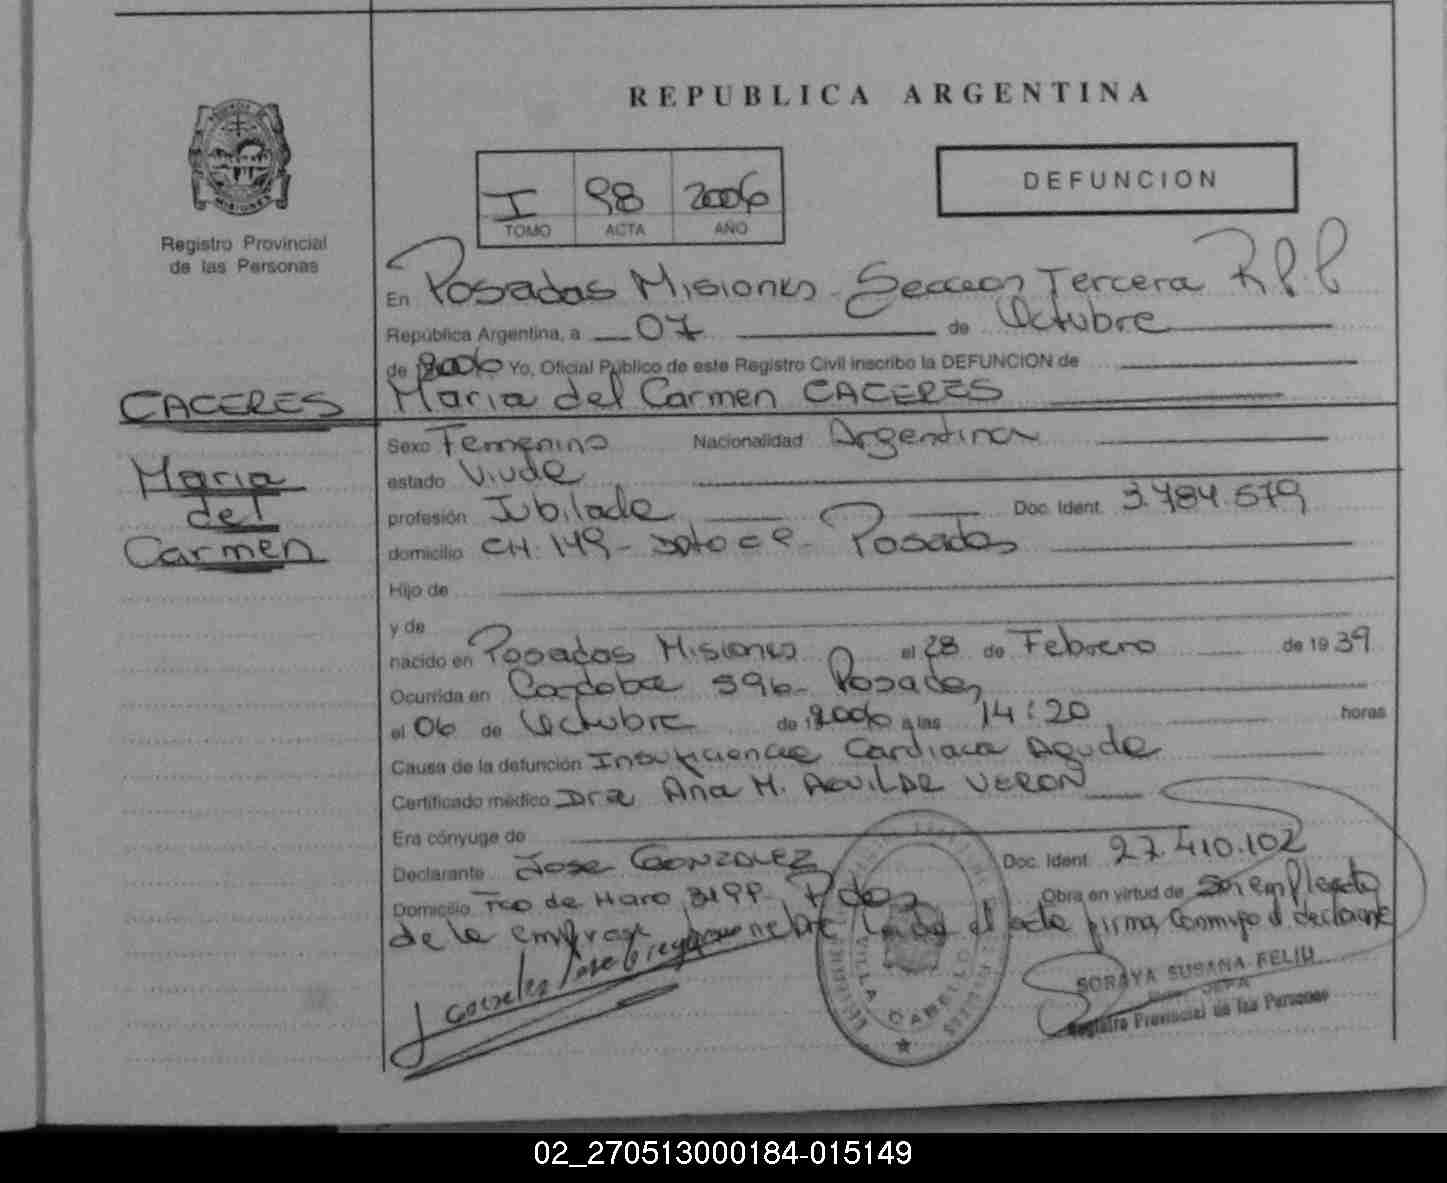 REPUBLICA ARGENTINA
I 98 2006
TOMO ACTA AÑO
DEFUNCION
Registro Provincial
de las Personas
En Posadas Misiones Seccion Tercera R.P.P
República Argentina, a 07 de Octubre
de 2006 Yo, Oficial Público de este Registro Civil inscribo la DEFUNCION de
Maria del Carmen CACERES
CACERES
Maria
del
Carmen
Sexo Femenino Nacionalidad Argentina
estado Viuda
profesión Jubilada Doc. Ident. 3.784.579
domicilio CH. 149 - Posadas
Hijo de
y de
nacido en Posadas Misiones el 28 de Febrero de 1939
Ocurrida en Cordoba 596- Posadas
el 06 de Octubre de 2006 a las 14:20 horas
Causa de la defunción Insuficiencia Cardiaca Aguda
Certificado médico Dra Ana M. AGUILAR VERON
Era cónyuge de
Declarante Jose GONZALEZ Doc. Ident. 27.410.102
Domicilio Fco de Haro 3199 Pdas Obra en virtud de ser empleado
de la empresa Leida el acta firma conmigo el declarante
VILLA CABELLO
SORAYA SUSANA FELIU
Registro Provincial de las Personas
02_270513000184-015149